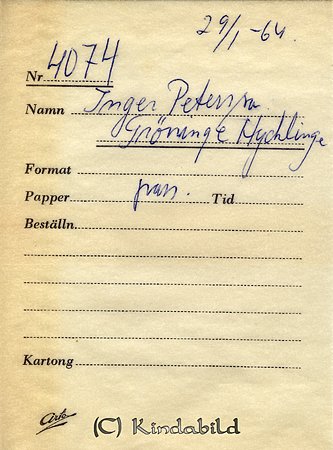 29/1-64.
Nr 4074
Namn Inger Peterson
Gröninge Hycklinge
Format
Papper pass. Tid
Beställn.
Kartong
Ark
(C) Kindabild